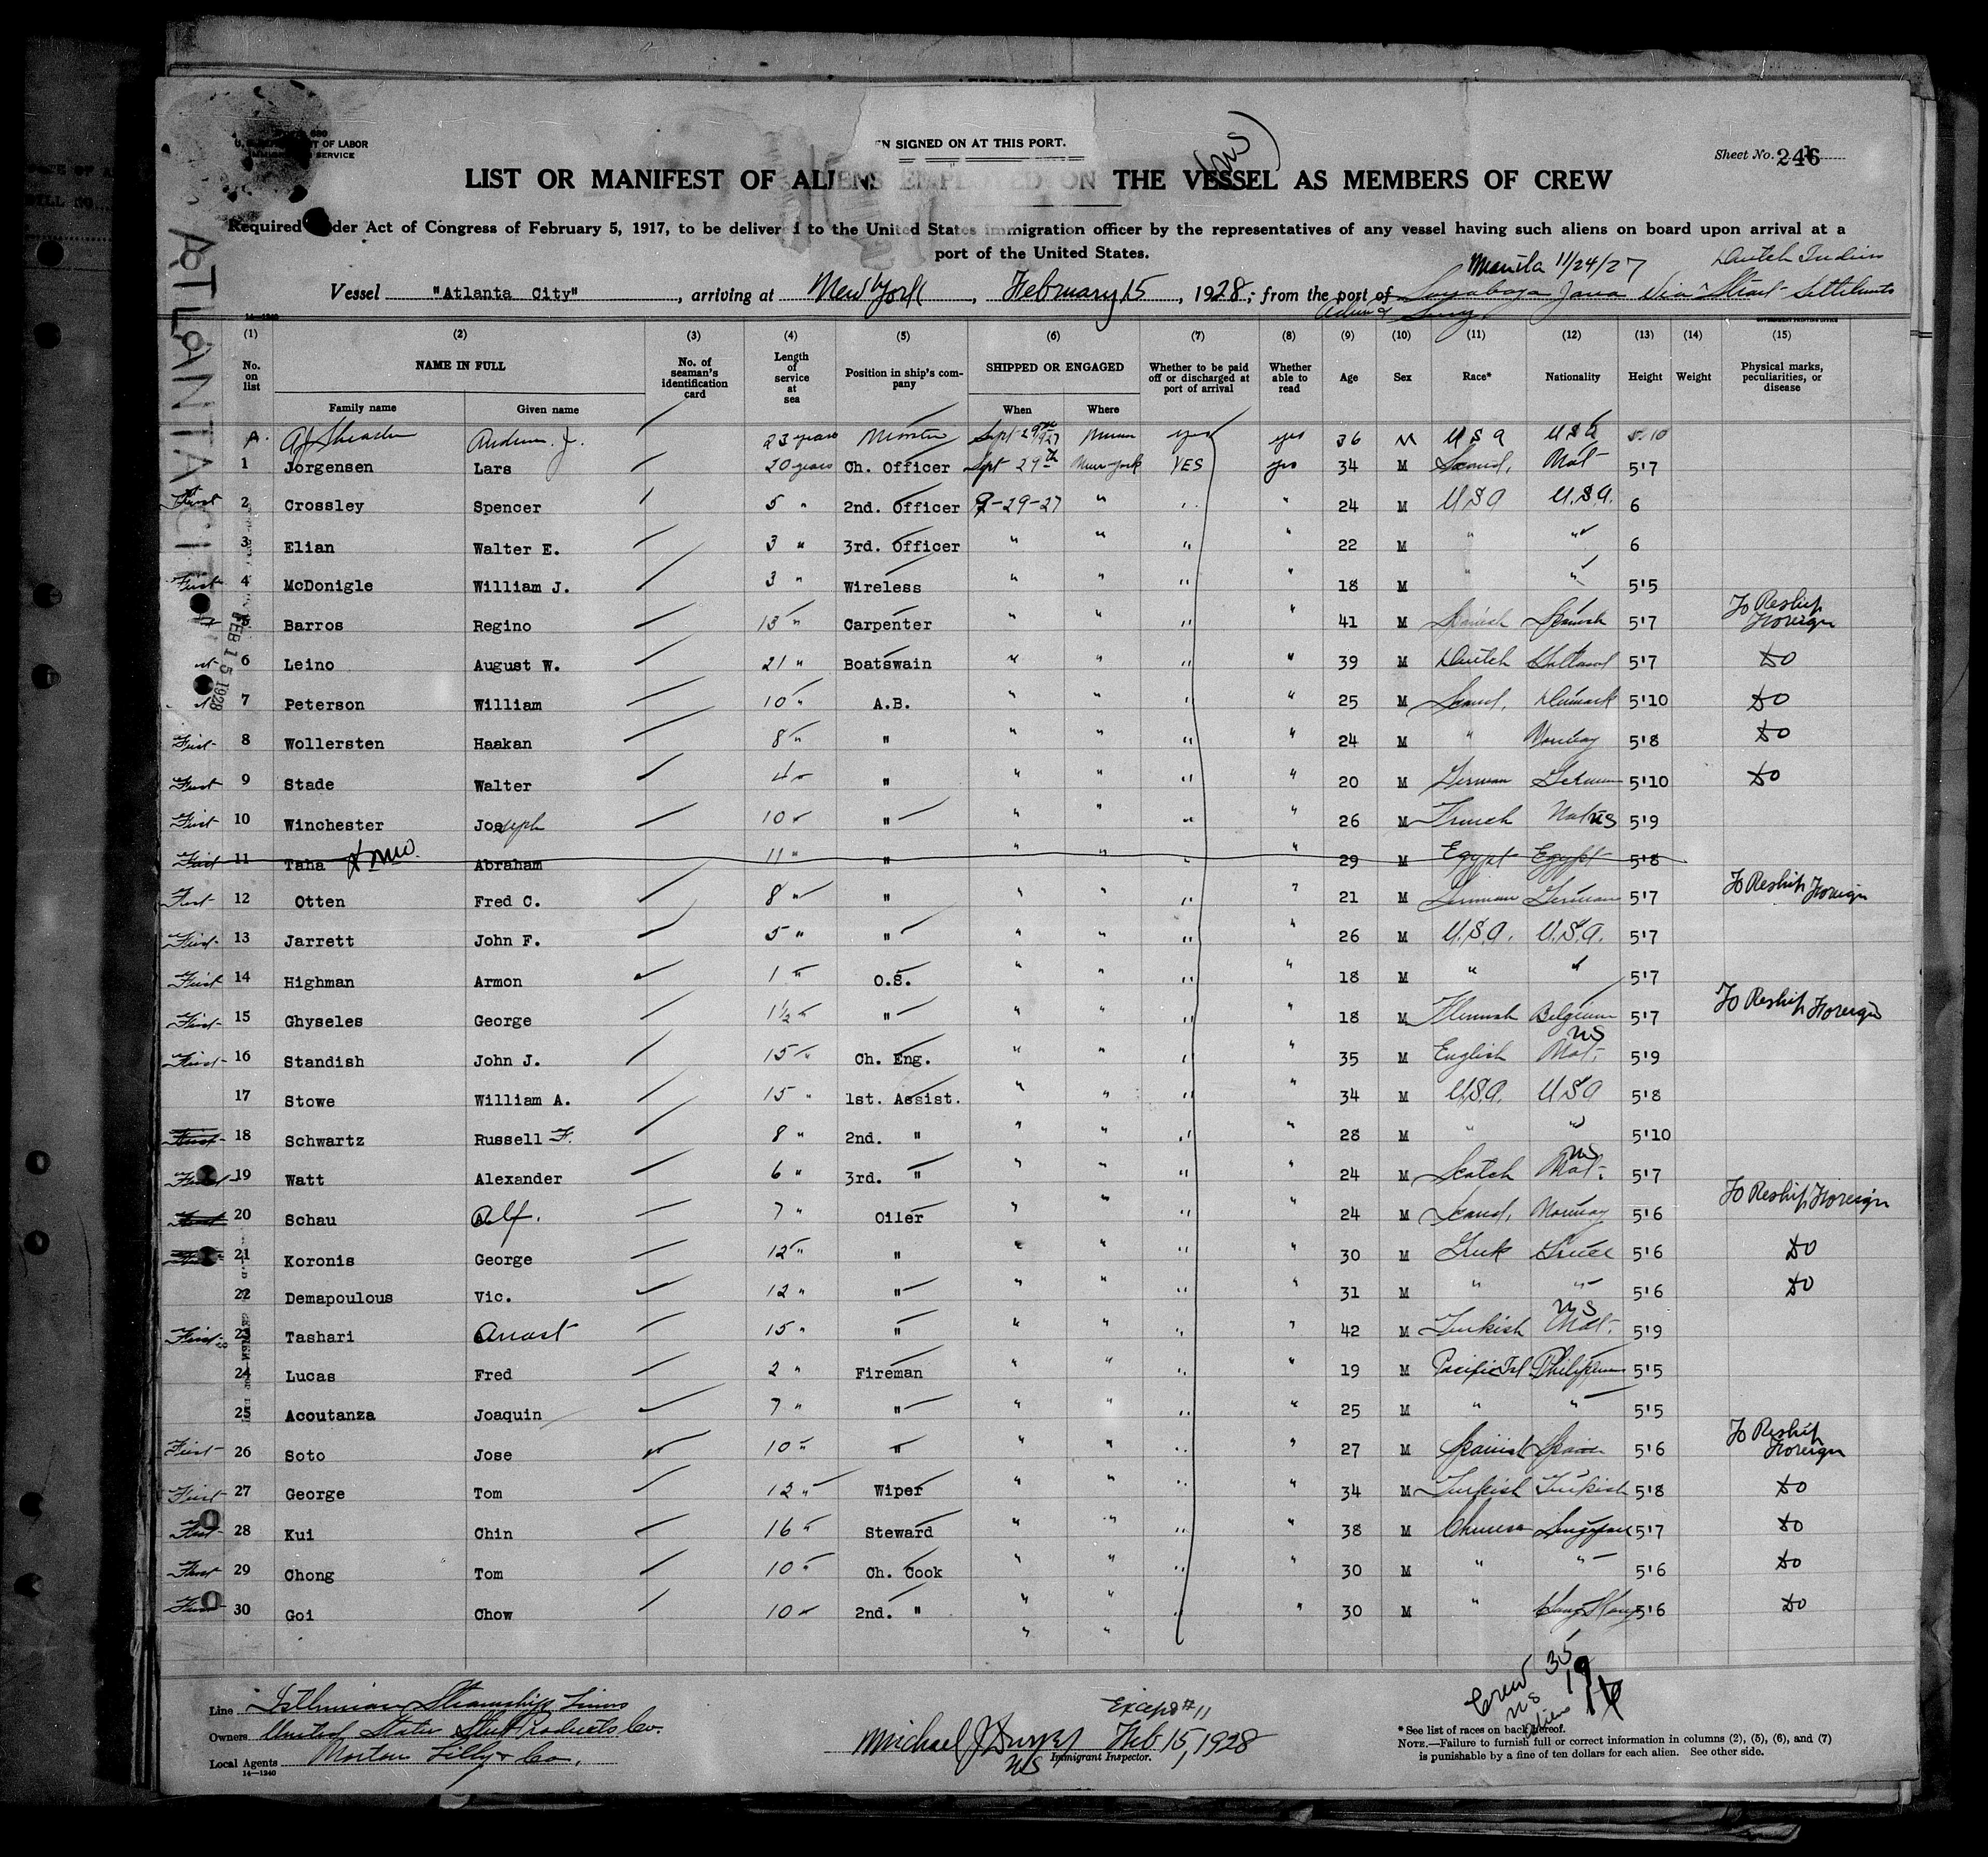 U. S. DEPARTMENT OF LABOR
SERVICE
SIGNED ON AT THIS PORT.
Sheet No. 246
LIST OR MANIFEST OF ALIENS EMPLOYED ON THE VESSEL AS MEMBERS OF CREW
Required under Act of Congress of February 5, 1917, to be delivered to the United States immigration officer by the representatives of any vessel having such aliens on board upon arrival at a
port of the United States.
Manila 11/24/27 Dutch Indies
Vessel "Atlanta City", arriving at New York, February 15, 1928; from the port of Java Via Strait Settlements
ATLANTA CIT
FEB 15 1928
(1) (2) (3) (4) (5) (6) (7) (8) (9) (10) (11) (12) (13) (14) (15)
No. on list NAME IN FULL Family name Given name No. of seaman's identification card Length of service at sea Position in ship's company SHIPPED OR ENGAGED When Where Whether to be paid off or discharged at port of arrival Whether able to read Age Sex Race* Nationality Height Weight Physical marks, peculiarities, or disease
Andrew J. 23 years Master Sept 29 1927 yes yes 36 M U S A U S A 5.10
1 Jorgensen Lars 20 years Ch. Officer Sept 29th New York YES yes 34 M Scand. Nat 5'7
First 2 Crossley Spencer 5 " 2nd. Officer 9-29-27 " " " 24 M U S A U.S.A. 6
3 Elian Walter E. 3 " 3rd. Officer " " " " 22 M " " 6
First 4 McDonigle William J. 3 " Wireless " " " " 18 M " " 5'5
5 Barros Regino 13 " Carpenter " " " " 41 M Spanish Spanish 5'7 To Reship Foreign
6 Leino August W. 21 " Boatswain " " " " 39 M Dutch Holland 5'7 Do
7 Peterson William 10 " A.B. " " " " 25 M Scand. Denmark 5'10 Do
First 8 Wollersten Haakan 8 " " " " " " 24 M " Norway 5'8 Do
First 9 Stade Walter 4 " " " " " " 20 M German German 5'10 Do
First 10 Winchester Joseph 10 " " " " " " 26 M French Nat US 5'9
First 11 Taha Abraham 11 " " " " " " 29 M Egypt Egypt 5'8
First 12 Otten Fred C. 8 " " " " " " 21 M German German 5'7 To Reship Foreign
First 13 Jarrett John F. 5 " " " " " " 26 M U.S.A. U.S.A. 5'7
First 14 Highman Armon 1 " O.S. " " " " 18 M " " 5'7
First 15 Ghyseles George 1½ " " " " " " 18 M Flemish Belgium 5'7 To Reship Foreign
First 16 Standish John J. 15 " Ch. Eng. " " " " 35 M English US Nat. 5'9
17 Stowe William A. 15 " 1st. Assist. " " " " 34 M U.S.A. U S A 5'8
First 18 Schwartz Russell F. 8 " 2nd. " " " " " 28 M " " 5'10
First 19 Watt Alexander 6 " 3rd. " " " " " 24 M Scotch US Nat. 5'7
First 20 Schau Alf. 7 " Oiler " " " " 24 M Scand. Norway 5'6 To Reship Foreign
21 Koronis George 12 " " " " " " 30 M Greek Greece 5'6 Do
22 Demapoulous Vic. 12 " " " " " " 31 M " " 5'6 Do
First 23 Tashari 15 " " " " " " 42 M Turkish US Nat. 5'9
24 Lucas Fred 2 " Fireman " " " " 19 M Pacific Isl Philippine 5'5
25 Acoutanza Joaquin 7 " " " " " " 25 M " " 5'5
First 26 Soto Jose 10 " " " " " " 27 M Spanish Spain 5'6 To Reship Foreign
First 27 George Tom 12 " Wiper " " " " 34 M Turkish Turkish 5'8 Do
First 28 Kui Chin 16 " Steward " " " " 38 M Chinese Singapore 5'7 Do
First 29 Chong Tom 10 " Ch. Cook " " " " 30 M " " 5'6 Do
First 30 Goi Chow 10 " 2nd. " " " " " 30 M " Hong Kong 5'6 Do
" "
Crew 35
US 19
Aliens 16
Line Isthmian Steamship Lines
Owners United States Steel Products Co.
Local Agents Norton Lilly & Co.
14—1240
Except #11
Michael J Feb 15, 1928
US Immigrant Inspector.
* See list of races on back hereof.
NOTE.—Failure to furnish full or correct information in columns (2), (5), (6), and (7)
is punishable by a fine of ten dollars for each alien. See other side.